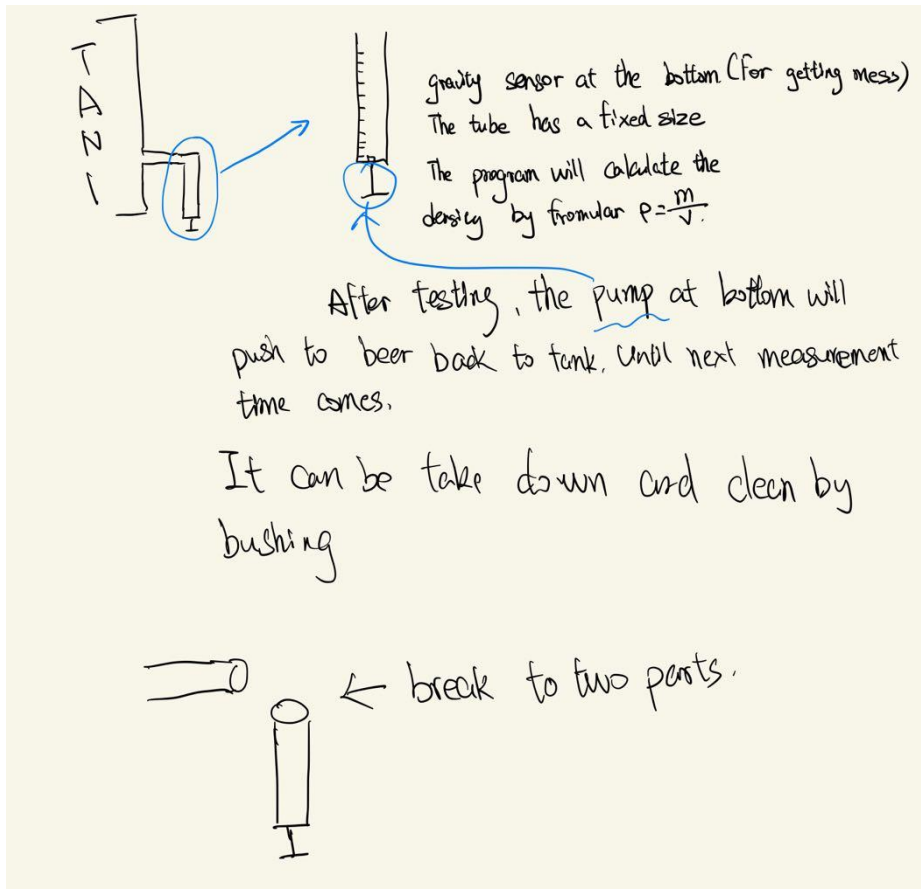 TANK
gravity sensor at the bottom (for getting mess)
The tube has a fixed size
The program will calculate the
density by fromular ρ = m/V.
After testing, the pump at bottom will
push to beer back to tank. Until next measurement
time comes.
It can be take down and clean by
bushing
← break to two parts.